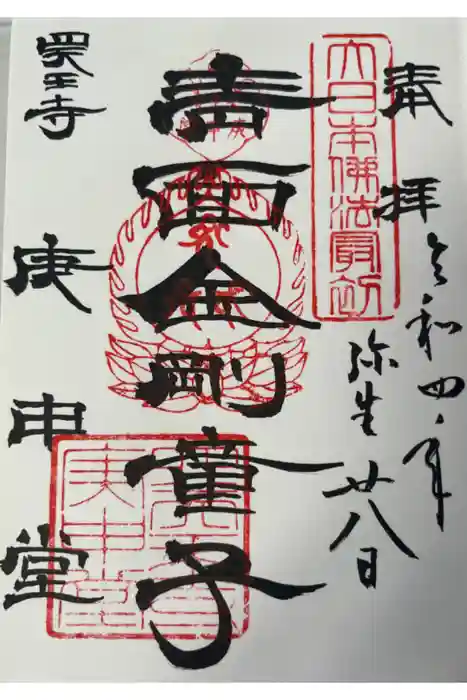 奉拝
令和四年
弥生廿八日
大日本佛法最初
青面金剛童子
四天王寺
庚申堂